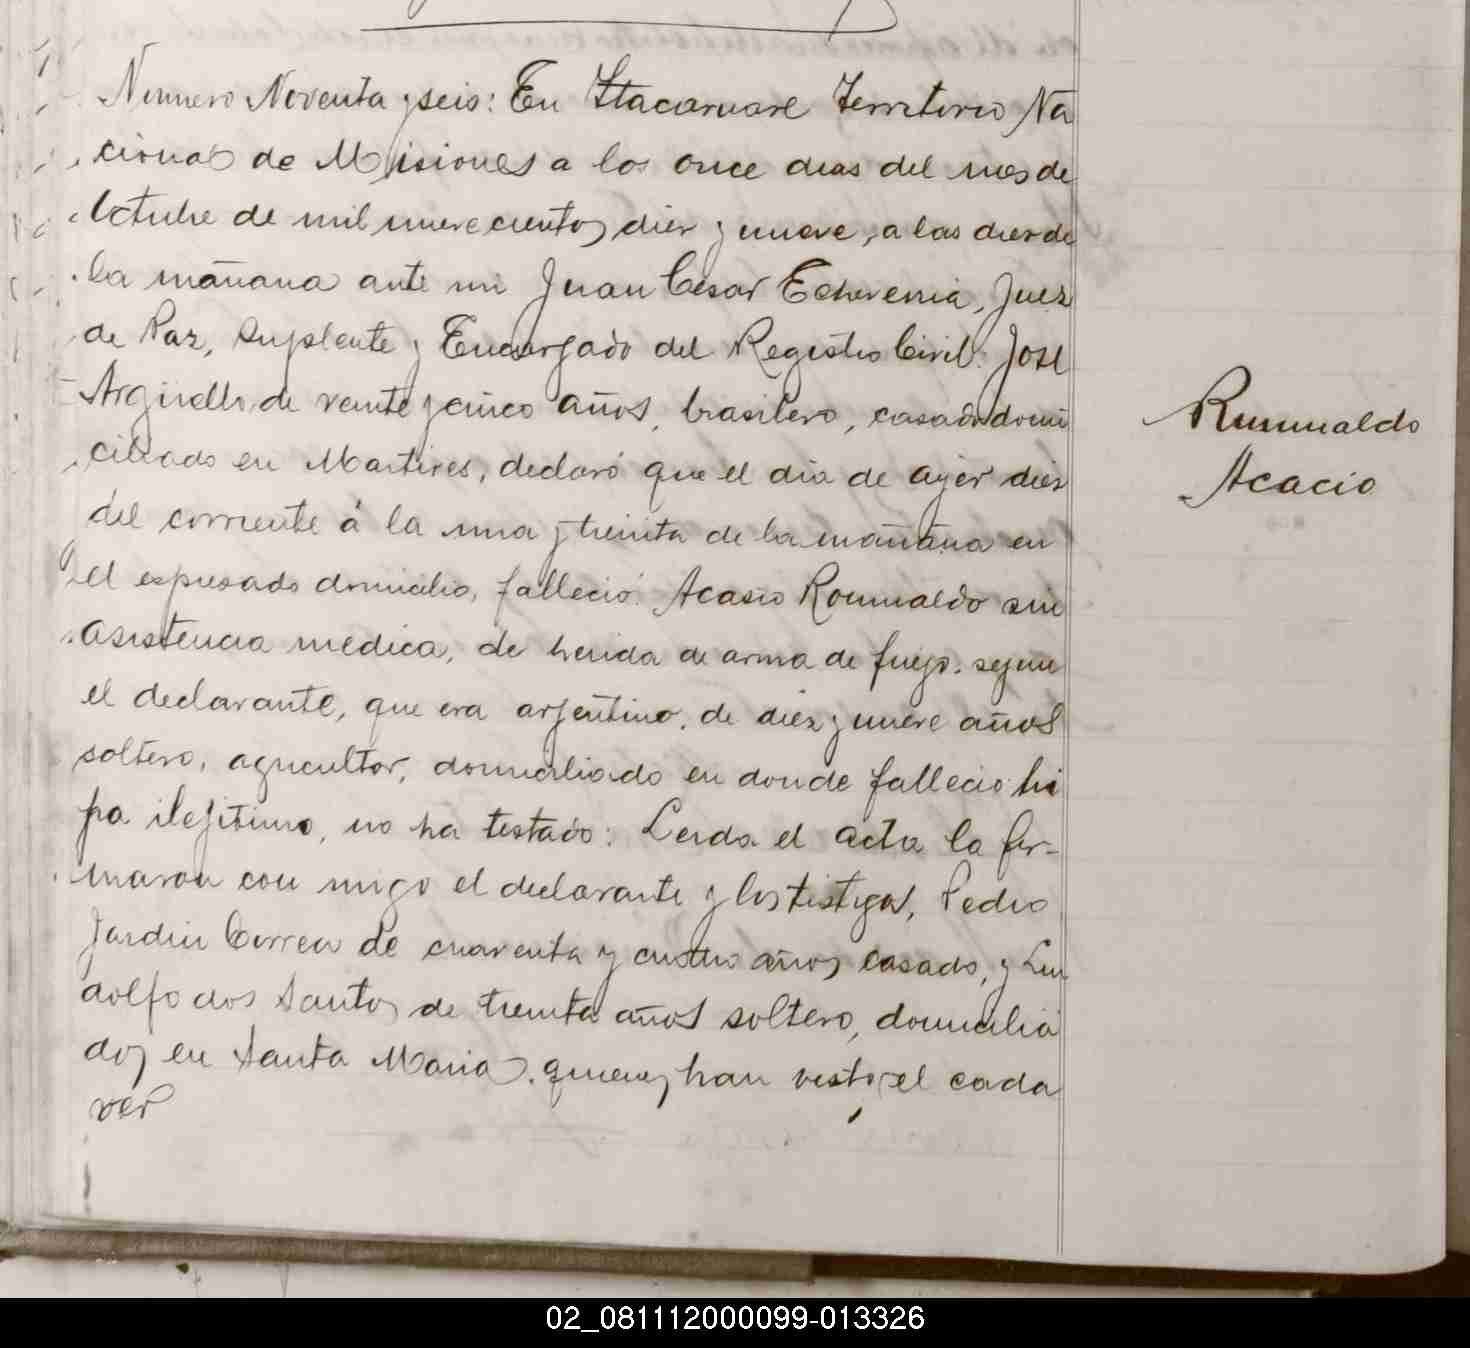 Numero Noventa y seis: En Itacaruare Territorio Na
cional de Misiones a los once dias del mes de
Octubre de mil nuevecientos diez y nueve, a las diez de
la mañana ante mi Juan Cesar Echeverria, Juez
de Paz, Suplente y Encargado del Registro Civil: José
Arguello de veinte y cinco años, brasilero, casado domi
ciliado en Martires, declaró que el dia de ayer diez
del corriente á la una y treinta de la mañana en
el espresado domicilio, falleció: Acasio Romualdo sin
asistencia medica, de herida de arma de fuego. segun
el declarante, que era arjentino, de diez y nueve años
soltero, agricultor, domiciliado en donde fallecio hi
jo ilejitimo, no ha testado: Leida el acta la fir-
maron con migo el declarante y los testigos, Pedro
Jardin Correa de cuarenta y cuatro años casado, y Lin
dolfo dos Santos de treinta años soltero, domicilia
dos en Santa Maria. quienes han visto el cada
ver
Rumualdo
Acacio
02_081112000099-013326